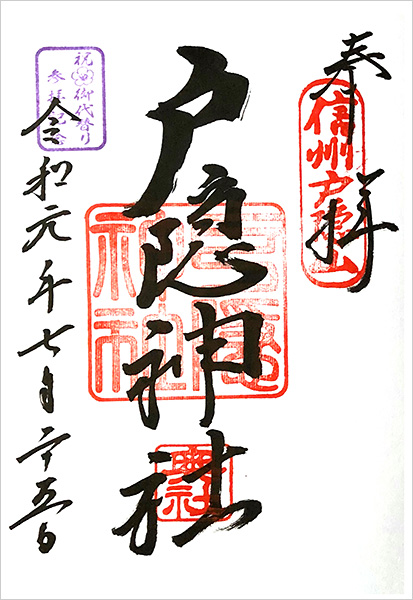 奉拝
信州戸隠山
戸隠神社
戸隠
神社
祝御代替り
参拝記念
令和元年七月二十五日